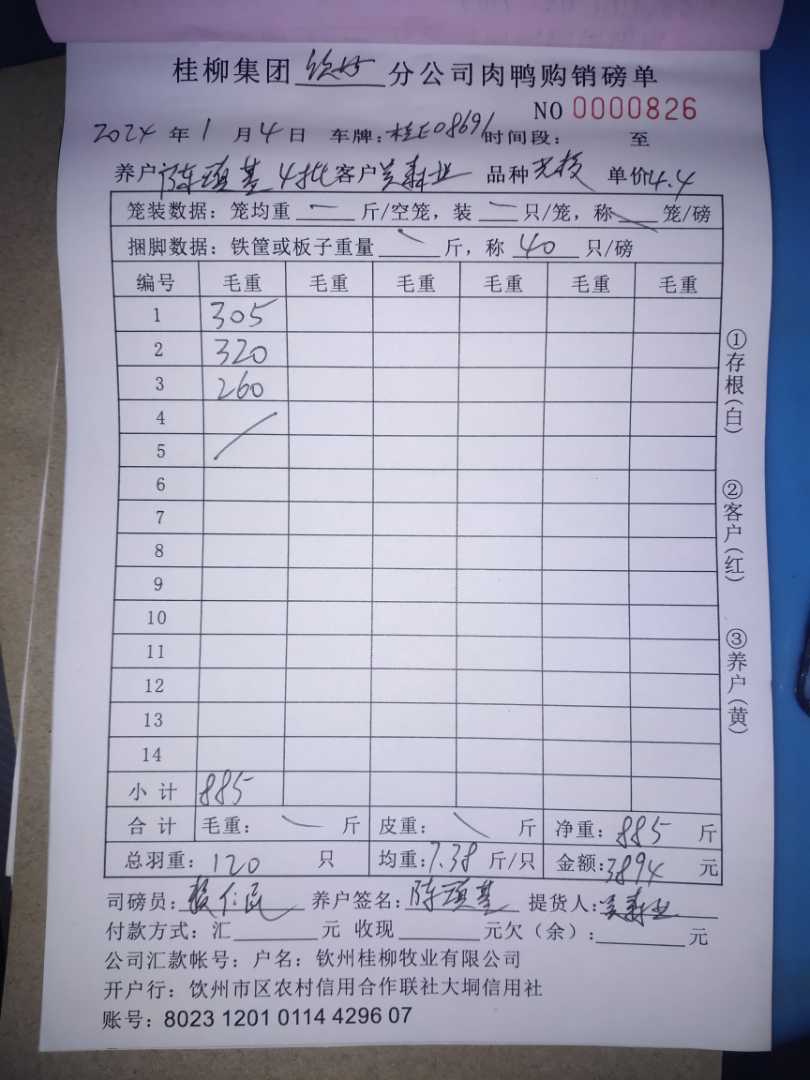 桂柳集团 钦州 分公司肉鸭购销磅单
NO 0000826
2024 年 1 月 4 日 车牌：桂E08691 时间段： 至
养户 陈琼基 4批 客户 吴森业 品种 单价 4.4
笼装数据：笼均重 一 斤/空笼，装 一 只/笼，称 笼/磅
捆脚数据：铁筐或板子重量 斤，称 40 只/磅
编号 毛重 毛重 毛重 毛重 毛重 毛重
1 305
2 320
3 260
4
5
6
7
8
9
10
11
12
13
14
小计 885
合计 毛重： 斤 皮重： 斤 净重：885 斤
总羽重：120 只 均重：7.38 斤/只 金额：3894 元
司磅员： 养户签名：陈琼基 提货人：吴森业
付款方式：汇 元 收现 元欠（余）： 元
公司汇款帐号：户名：钦州桂柳牧业有限公司
开户行：饮州市区农村信用合作联社大垌信用社
账号：8023 1201 0114 4296 07
①存根（白）
②客户（红）
③养户（黄）